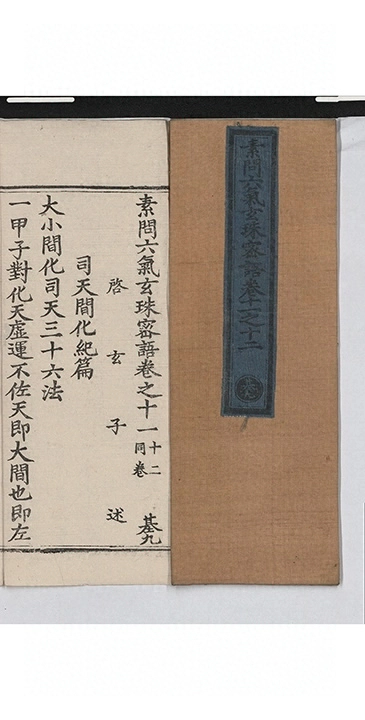 素問六氣玄珠密語卷十一之十二
基
素問六氣玄珠密語卷之十一 十二同卷 基九
啓玄子述
司天間化紀篇
大小間化司天三十六法
一甲子對化天虛運不佐天即大間也即左